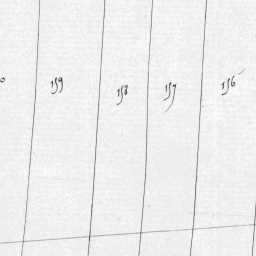 159 158 157 156